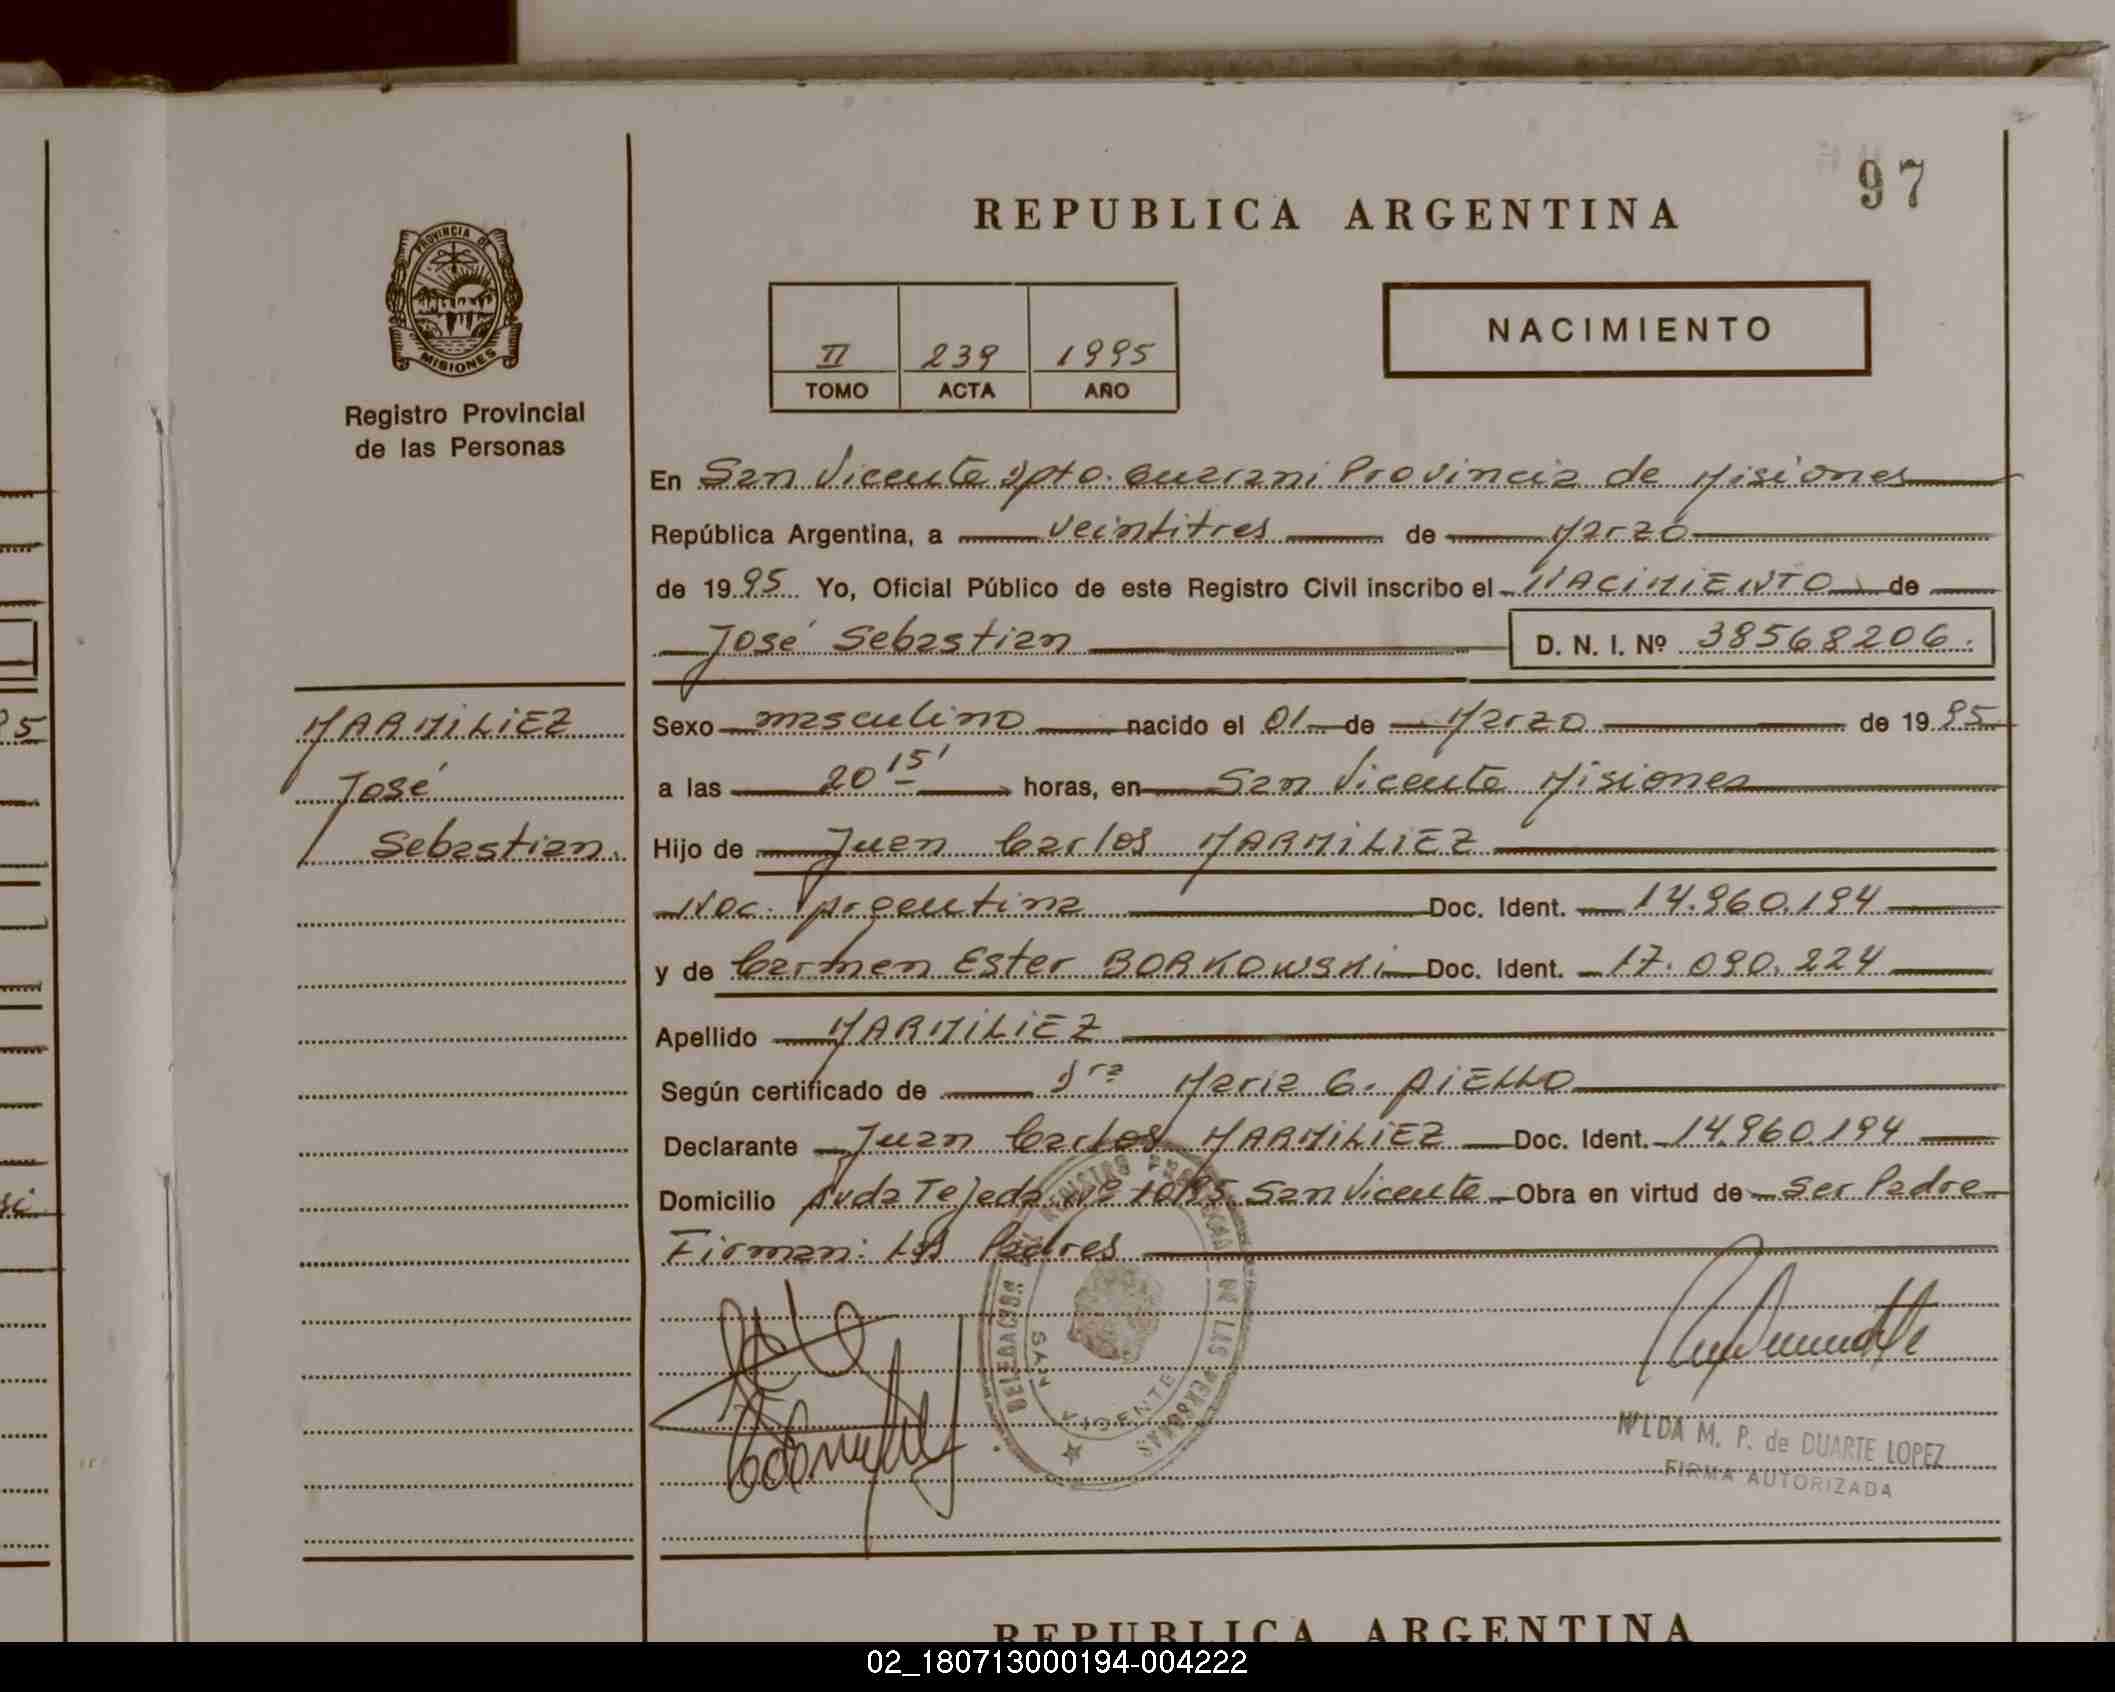 97
REPUBLICA ARGENTINA
PROVINCIA DE
MISIONES
Registro Provincial
de las Personas
II 239 1995
TOMO ACTA AÑO
NACIMIENTO
En San Vicente Dpto. Guarani Provincia de Misiones
República Argentina, a veintitres de Marzo
de 1995 Yo, Oficial Público de este Registro Civil inscribo el NACIMIENTO de
José Sebastian D. N. I. Nº 38568206.
MARMILIEZ
José
Sebastian.
Sexo masculino nacido el 01 de Marzo de 1995
a las 20 15' horas, en San Vicente Misiones
Hijo de Juan Carlos MARMILIEZ
Nac. Argentina Doc. Ident. 14.960.194
y de Carmen Ester BORKOWSKI Doc. Ident. 17.090.224
Apellido MARMILIEZ
Según certificado de Dra Maria C. AIELLO
Declarante Juan Carlos MARMILIEZ Doc. Ident. 14.960.194
Domicilio Avda Tejeda Nº San Vicente Obra en virtud de Ser Padre
Firman: Los Padres
DELEGACION REGISTRO DE LAS PERSONAS
SAN VICENTE
NILDA M. P. de DUARTE LOPEZ
FIRMA AUTORIZADA
REPUBLICA ARGENTINA
02_180713000194-004222